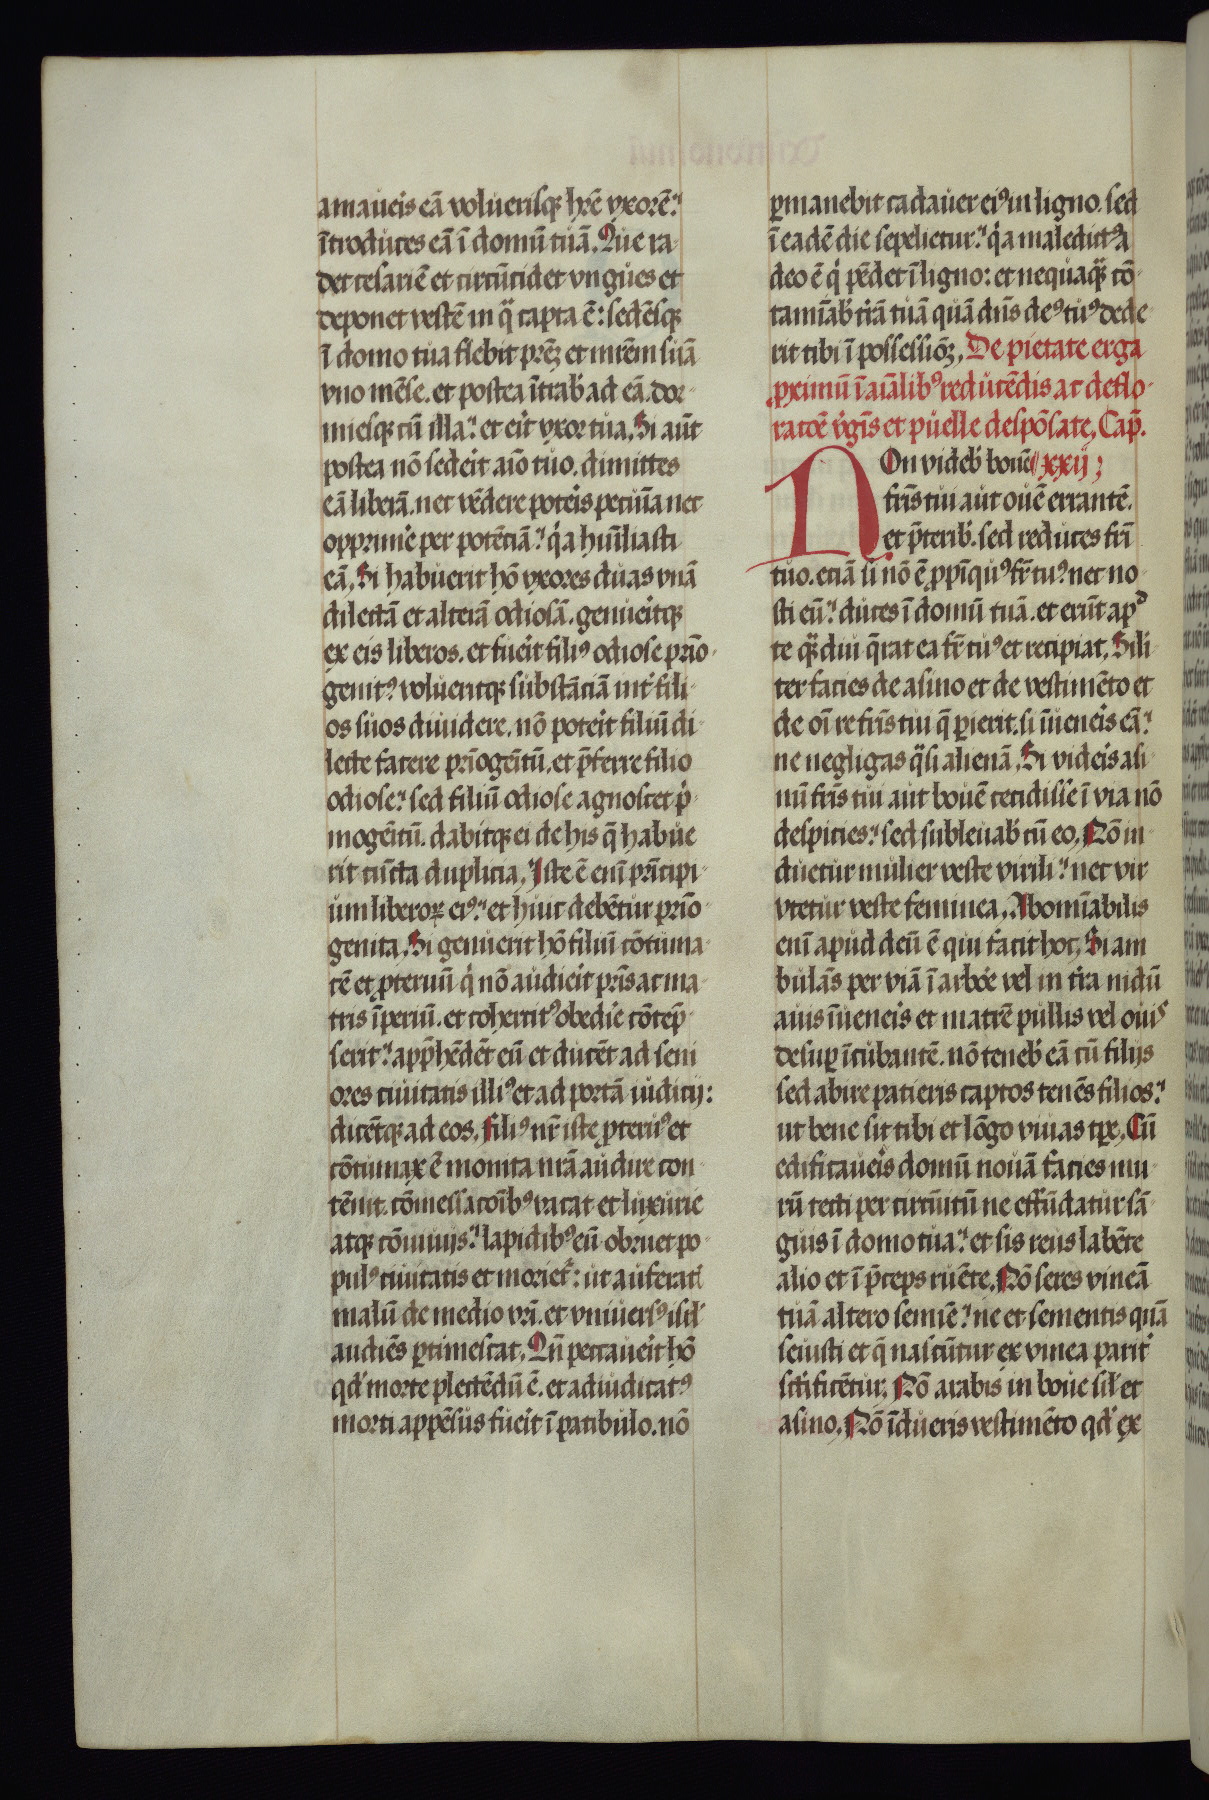 amaueis eā volueriſq; hr̄e vxorē:'
ītroduces eā ī domū tuā. Que ra-
det ceſariē et circūcidet vngues et
deponet veſtē in q̄ capta ē: ſedēſq;
ī domo tua flebit pr̄eȝ et mr̄em ſuā
vno mēſe. et poſtea ītrab' ad eā. dor-
mieſq; cū illa:' et eit vxor tua. Si aūt
poſtea nō ſedeit aīo tuo. dimittes
eā liberā. nec vēdere poteis pecuīa nec
opprime per potētiā:' q̇a huīliaſti
eā. Si habuerit hō vxores duas vnā
dilectā et alterā odioſā. genueitq;
ex eis liberos. et fueit filiꝰ odioſe prīo-
genitꝰ. volueritq; ſubſtātiā int' fili-
os ſuos diuidere. nō poteit filiū di-
lecte facere prīogeītū. et p̄ferre filio
odioſe:' ſed filiū odioſe agnoſcet p̍-
mogeītū. dabitq; ei de his q̄ habue
rit cūcta duplicia. Iſte ē enī prīcipi-
um liberoꝝ eiꝰ:' et huic debētur prīo-
genita. Si genuerit hō filiū cōtuma-
cē et ꝓteruū q̇ nō audieit pr̄is ac ma-
tris īperiū. et cohercitꝰ obedie cōtēp-
ſerit:' app̄hēdēt eū et ducēt ad ſeni
ores ciuitatis illiꝰ et ad portā iudicij:
dicētq; ad eos. Filiꝰ nr̄ iſte ꝓteruꝰ et
cōtumax ē monita nr̄a audire con-
tēnit. cōmeſſacoībꝰ vacat et luxurie
atq; cōuiuijs:' lapidibꝰ eū obruet po-
pulꝰ ciuitatis et moriet᷑: ut auferatꝭ
malū de medio vr̄i. et vniuerſꝰ iſrl'
audiēs ꝑtimeſcat. Qn̄ peccaueit hō
qd' morte plectēdū ē. et adiudicatꝰ
morti appēſus fueit ī patibulo. nō
ꝑmanebit cadauer eiꝰ in ligno. ſed
ī eadē die ſepelietur:' q̇a maledictꝰ a
deo ē q̇ pēdet ī ligno: et nequaq̄ȝ cō-
tamīab' tr̄ā tuā quā dn̄s deꝰ tuꝰ dede-
rit tibi ī poſſeſſiōȝ. De pietate erga
ꝓximū ī aīalibꝰ reducēdis ac deflo-
ratōe v̇gīs et puelle deſpōſate. Cap̄.
NOn videb' bouē xxij;
fr̄is tui aut ouē errantē.
et p̄terib'. ſed reduces fr̄i
tuo. etiā ſi nō ē ꝓpīquꝰ fr̄ tuꝰ nec no-
ſti eū:' duces ī domū tuā. et erūt apᵈ
te q̄ȝdiu q̄rat ea fr̄ tuꝰ et recipiat. Sili-
ter facies de aſino et de veſtimēto et
de oī re fr̄is tui q̄ ꝑierit. ſi īueneis eā:'
ne negligas q̄ſi alienā. Si videis aſi-
nū fr̄is tui aut bouē cecidiſſe ī via nō
deſpicies:' ſed ſubleuab' cū eo. Nō in-
duetur mulier veſte virili:' nec vir
vtetur veſte feminea. Abomīabilis
enī apud deū ē qui facit hoc. Si am
bulās per viā ī arboe vel in tr̄a nidū
auis īueneis et matrē pullis vel ouiꝰ
deſuꝑ īcubantē. nō teneb' eā cū filijs
ſed abire patieris captos tenēs filios:'
ut bene ſit tibi et lōgo viuas tꝑe. Cū
edificaueis domū nouā facies mu-
rū tecti per circūitū ne effūdatur ſā-
guis ī domo tua:' et ſis reus labēte
alio et ī p̄ceps ruēte. Nō ſeres vineā
tuā altero ſemīe:' ne et ſementis quā
ſeuiſti et q̄ naſcūtur ex vinea parit'
ſctificētur. Nō arabis in boue ſil' et
aſino. Nō īdueris veſtimēto qd' ex